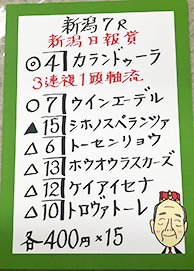 新潟7R
新潟日報賞
◎4 カランドゥーラ
3連複1頭軸流
○7 ウインエーデル
▲15 シホノスペランツァ
△6 トーセンリョウ
△13 ホウオウラスカーズ
△12 ケイアイセナ
△10 トロヴァトーレ
各400円×15